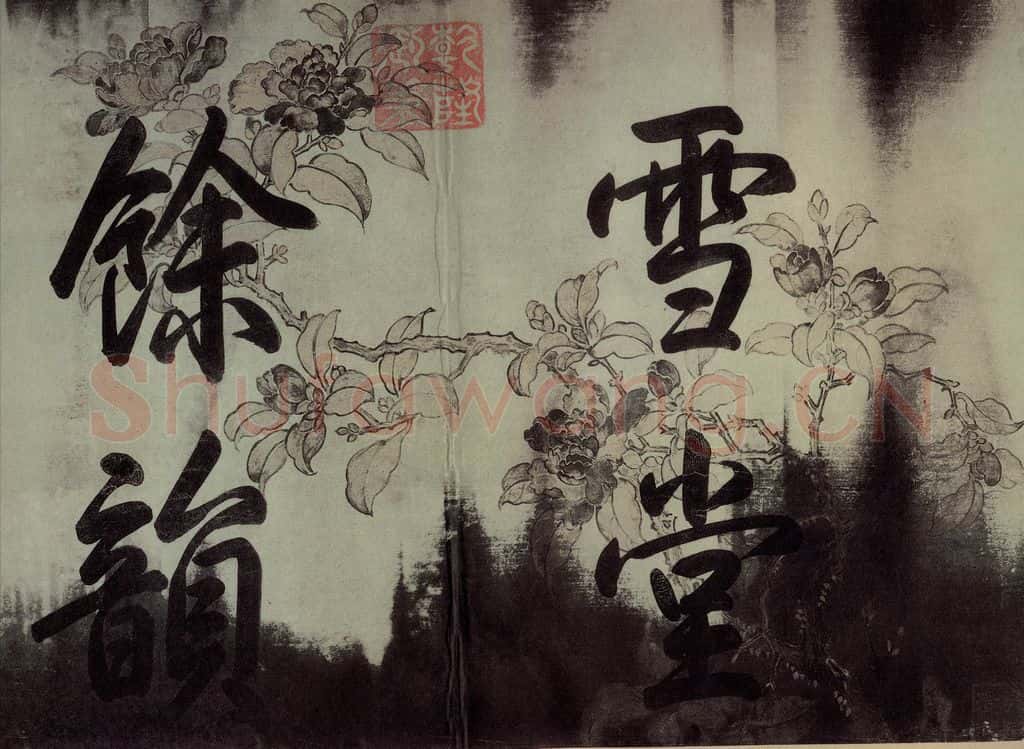 雪堂
餘韻
Shufawang.CN